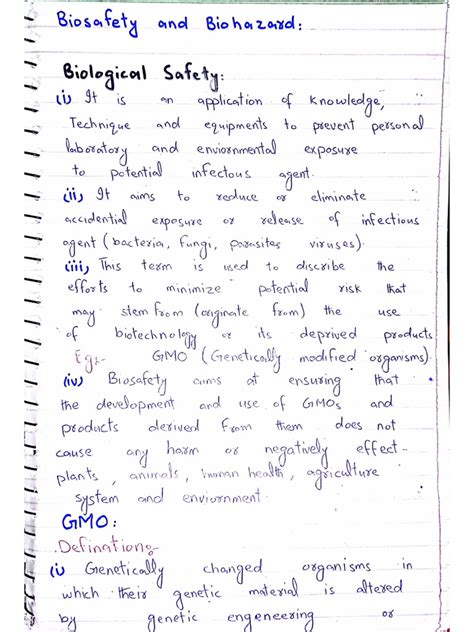 Biosafety and Biohazard:
Biological Safety:
(i) It is an application of knowledge,
Technique and equipments to prevent personal
laboratory and enviornmental exposure
to potential infectous agent.
(ii) It aims to reduce or eliminate
accidential exposure or release of infectious
agent (bacteria, Fungi, parasites viruses).
(iii) This term is used to discribe the
efforts to minimize potential risk that
may stem from (originate from) the use
of biotechnology or its deprived products
Eg:- GMO (Genetically modified organisms).
(iv) Biosafety aims at ensuring that
the development and use of GMOs and
products derived from them does not
cause any harm or negatively effect
plants, animals, human health, agriculture
system and enviornment.
GMO:
Defination:-
(i) Genetically changed organisms in
which their genetic material is altered
by genetic engeneering or